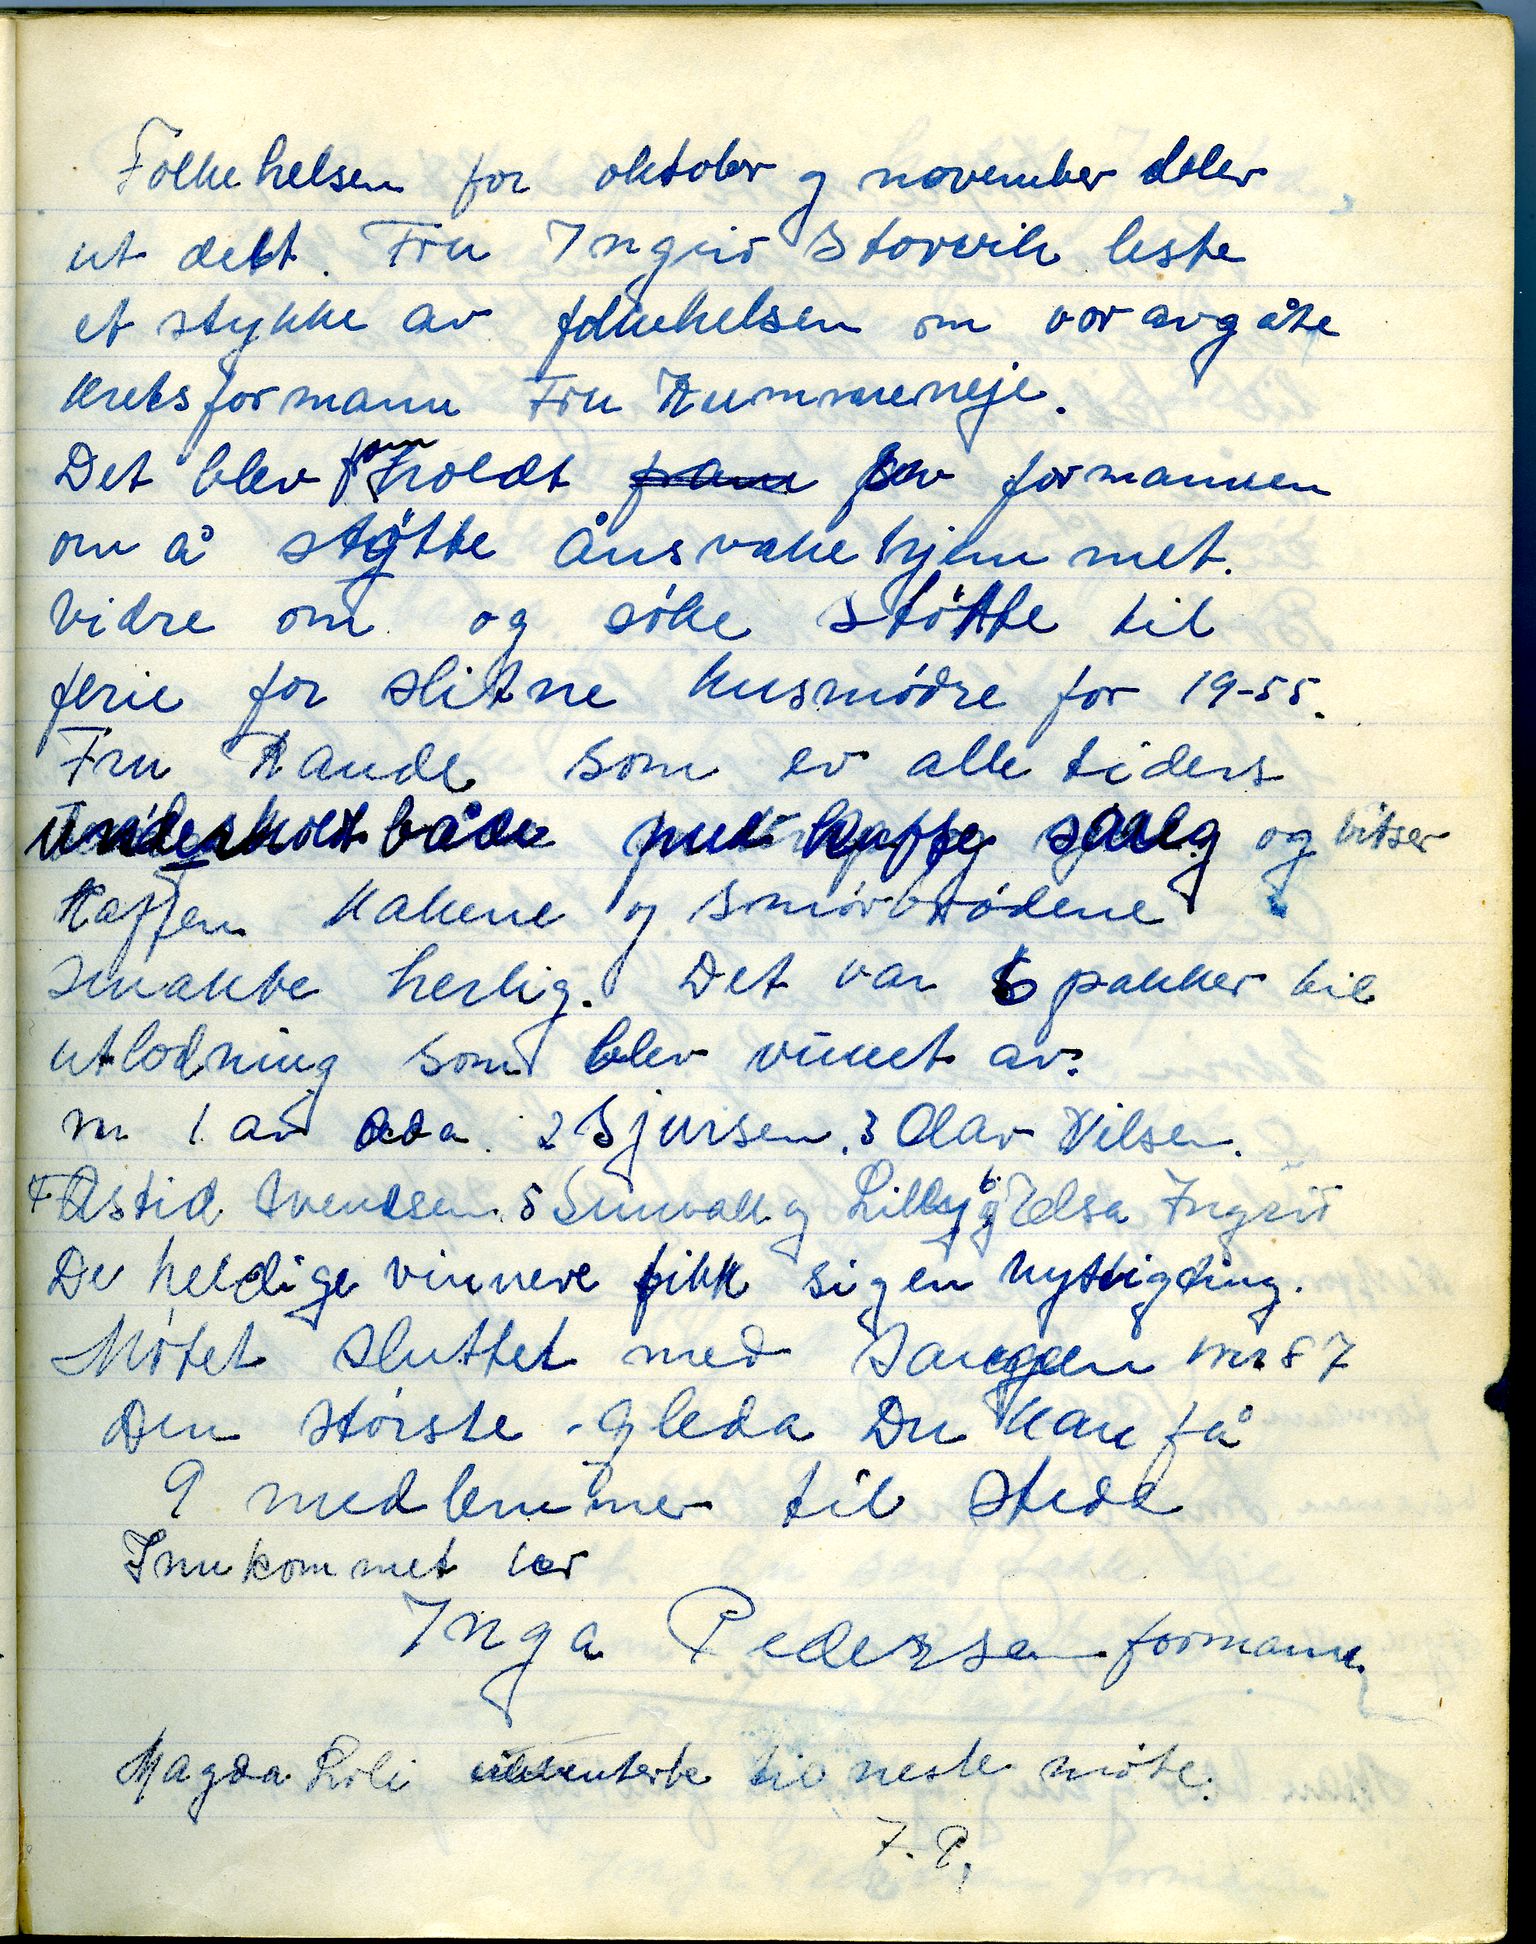 Folkehelsen for oktober og november blev
ut delt. Fru Ingrid Storvik leste
et stykke av folkehelsen om vor avgåte
kretsformann Fru Rummeneje.
Det blev fram holdt fram av formannen
om å støtte Åns vake hjemmet.
vidre om og søke støtte til
ferie for slitne husmødre for 19-55.
Fru Rande som er alle tiders
Underholdt både med kaffe salg og vitser
Kaffen kakene og smørbrødene
smakte herlig. Det var 6 pakker til
utlodning som blev vunnet av:
nr 1 av Ada. 2 Sjursen. 3 Olav Nilsen.
4 Astid Svendsen. 5 Sunvall og Lilly 6 og Elsa Ingrid
De heldige vinnere fikk sig en nyttig ting.
Møtet sluttet med Sangen nr 87
Den største gleda Du kan få
9 medlemmer til stede
Innkommet kr
Inga Pedersen formann
Magda til neste møte.
I. P.